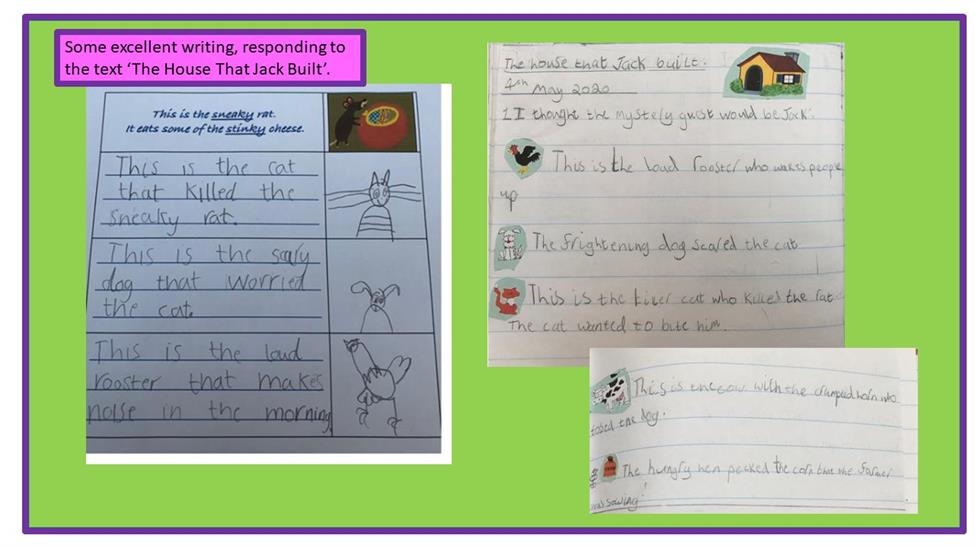 Some excellent writing, responding to
the text ‘The House That Jack Built’.
This is the sneaky rat.
It eats some of the stinky cheese.
This is the cat
that killed the
sneaky rat.
This is the scary
dog that worried
the cat.
This is the loud
rooster that makes
noise in the morning.
The house that Jack built.
4th May 2020
1 I thought the mystery guest would be Jack.
This is the loud rooster who wakes people
up
The frightening dog scared the cat
This is the cat who killed the rat.
The cat wanted to bite him.
This is the cow with the horn who
the dog.
The hungry hen pecked the corn the farmer
was sowing!